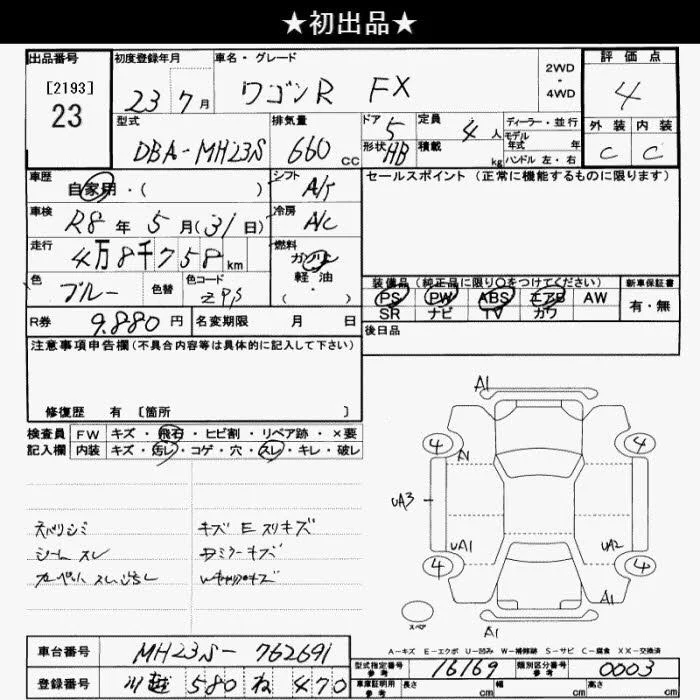 ★初出品★
出品番号 初度登録年月 車名・グレード 評価点
[2193]
23
23年7月 ワゴンR FX 2WD・4WD 4
型式 排気量 ドア 5 定員 4人 ディーラー・並行 外装 内装
DBA-MH23S 660CC 形状 HB 積載 kg モデル年式 年 ハンドル 左・右 C C
車歴 自家用・( ) シフト A/T セールスポイント(正常に機能するものに限ります)
車検 R8年5月(31日) 冷房 A/C
走行 4万8千758km 燃料 ガソリン
色 ブルー 色替 色コード 軽油・( )
装備品(純正品に限り○をつけてください) 新車保証書
PS PW ABS エアB AW 有・無
SR ナビ TV カワ
R券 9.880円 名変期限 月 日 後日品
注意事項申告欄(不具合内容等は具体的に記入して下さい)
修復歴 有 [箇所 ]
検査員 FW キズ・飛石・ヒビ割・リペア跡・×要
記入欄 内装 キズ・汚レ・コゲ・穴・スレ・キレ・破レ
シート スレ
キズ E スリキズ
ミラーキズ
A1
4 4
A1
UA3
UA1 UA2
4 4
A1
A1
スペア
A-キズ E-エクボ U-凹み W-補修跡 S-サビ C-腐食 XX-交換済
車台番号 MH23S-762691
登録番号 川越 580 ね 470
型式指定番号 参考 16169 類別区分番号 参考 0003
車庫証明用 参考 長さ cm 幅 cm 高さ cm